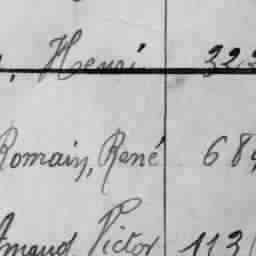 , Henri 323
Romain, René 684
Arnaud, Victor 113